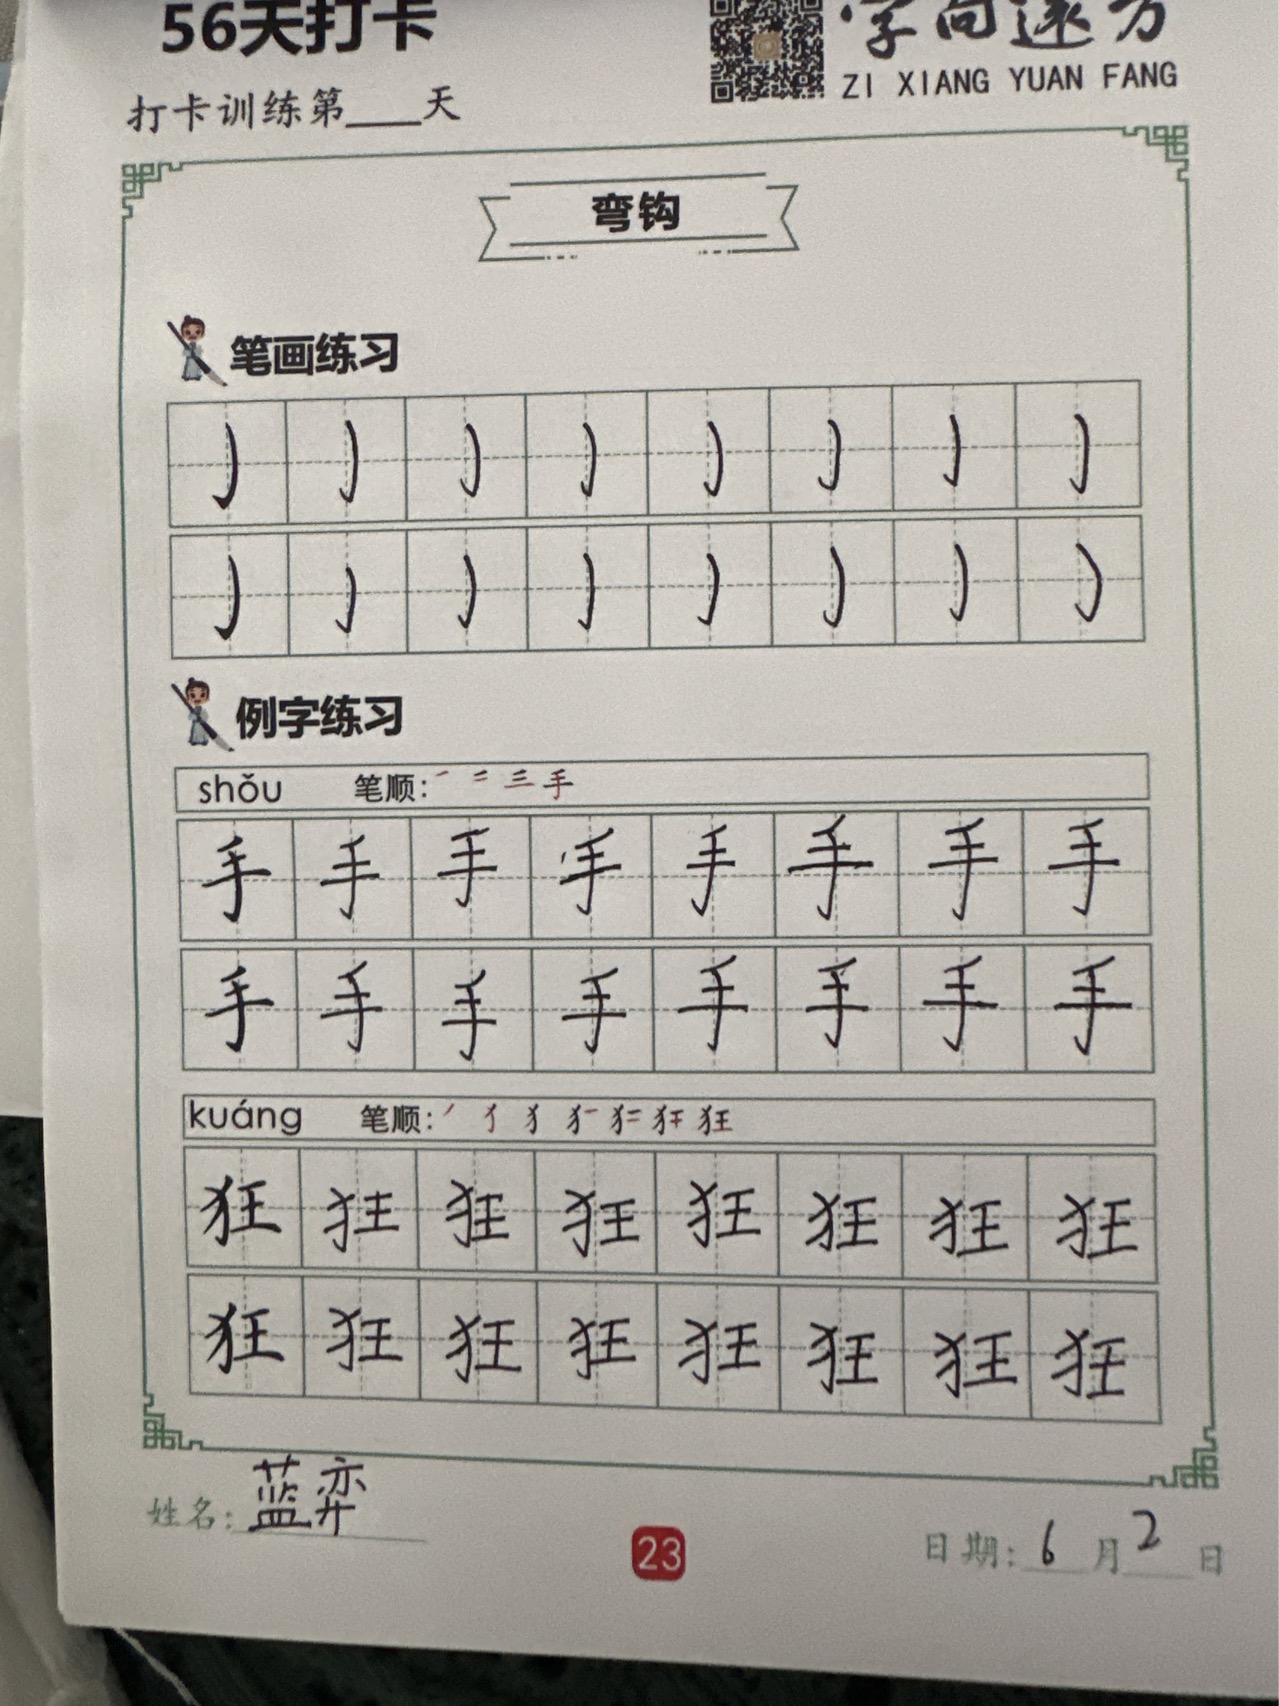 56天打卡
字向远方
ZI XIANG YUAN FANG
打卡训练第___天
弯钩
笔画练习
例字练习
shǒu 笔顺: 一 二 三 手
手 手 手 手 手 手 手 手
手 手 手 手 手 手 手 手
kuáng 笔顺: ㇒ 犭 狂
狂 狂 狂 狂 狂 狂 狂 狂
狂 狂 狂 狂 狂 狂 狂 狂
姓名: 蓝弈
23
日期: 6月2日